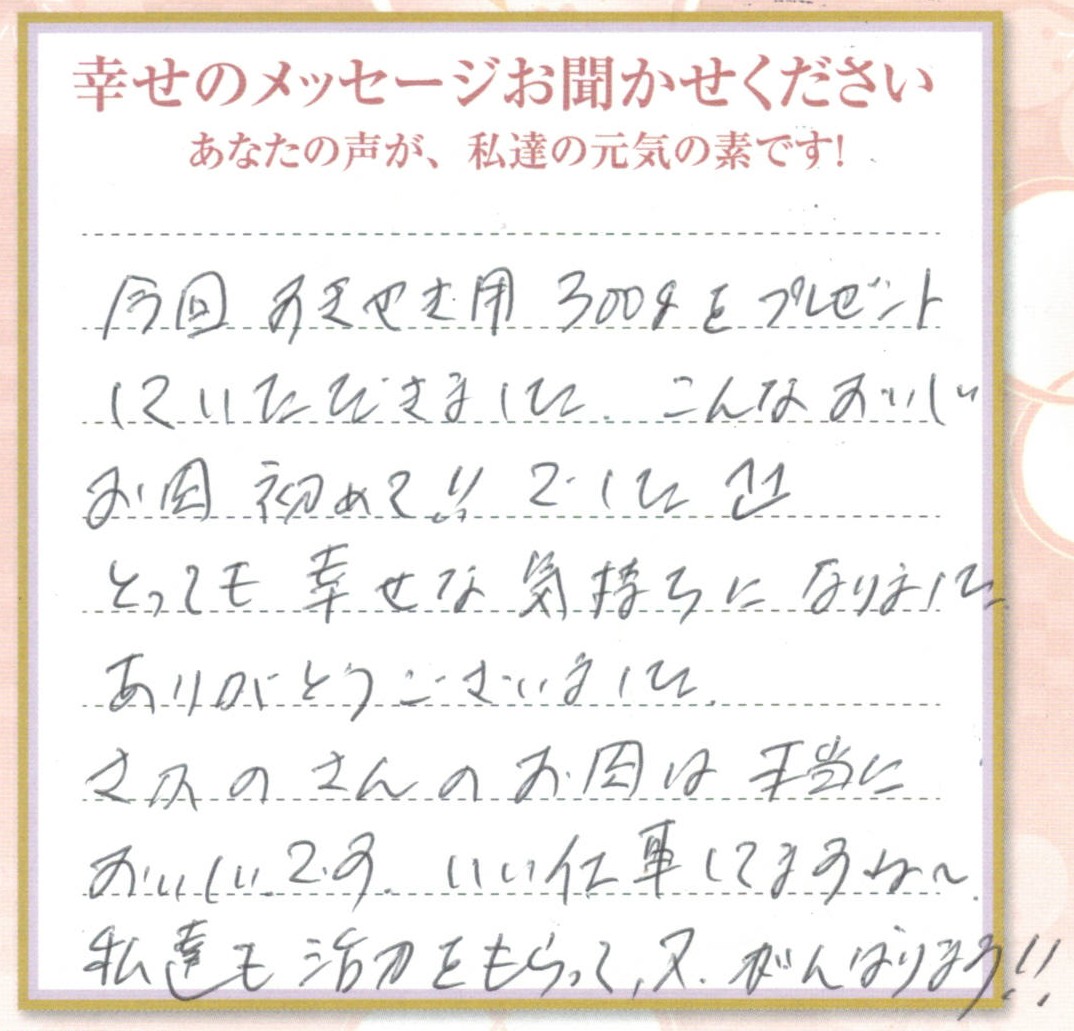 幸せのメッセージお聞かせください
あなたの声が、私達の元気の素です!
今回 すきやき用 300gをプレゼント
していただきました。こんなおいしい
お肉 初めて!!でした
とっても 幸せな 気持ちに なりました
ありがとうございました。
さかのさんのお肉は 本当に
おいしいです。いい仕事してますね〜
私達も 活力をもらって、又、がんばります!!